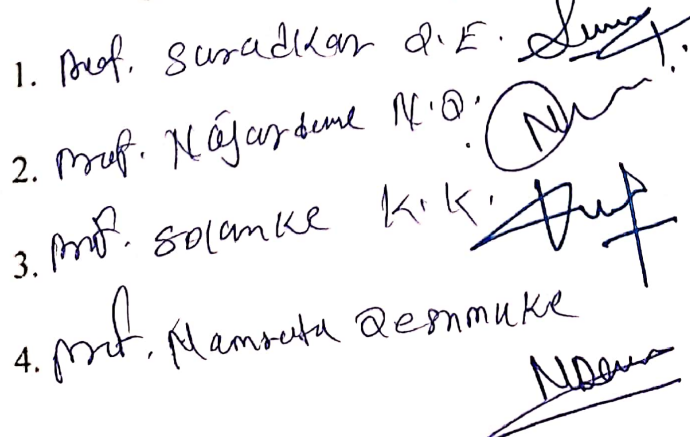 1. Prof. Suradkar D.E.
2. Prof. N.D.
3. Prof. Solanke K.K.
4. Prof. Namrata Deshmuke